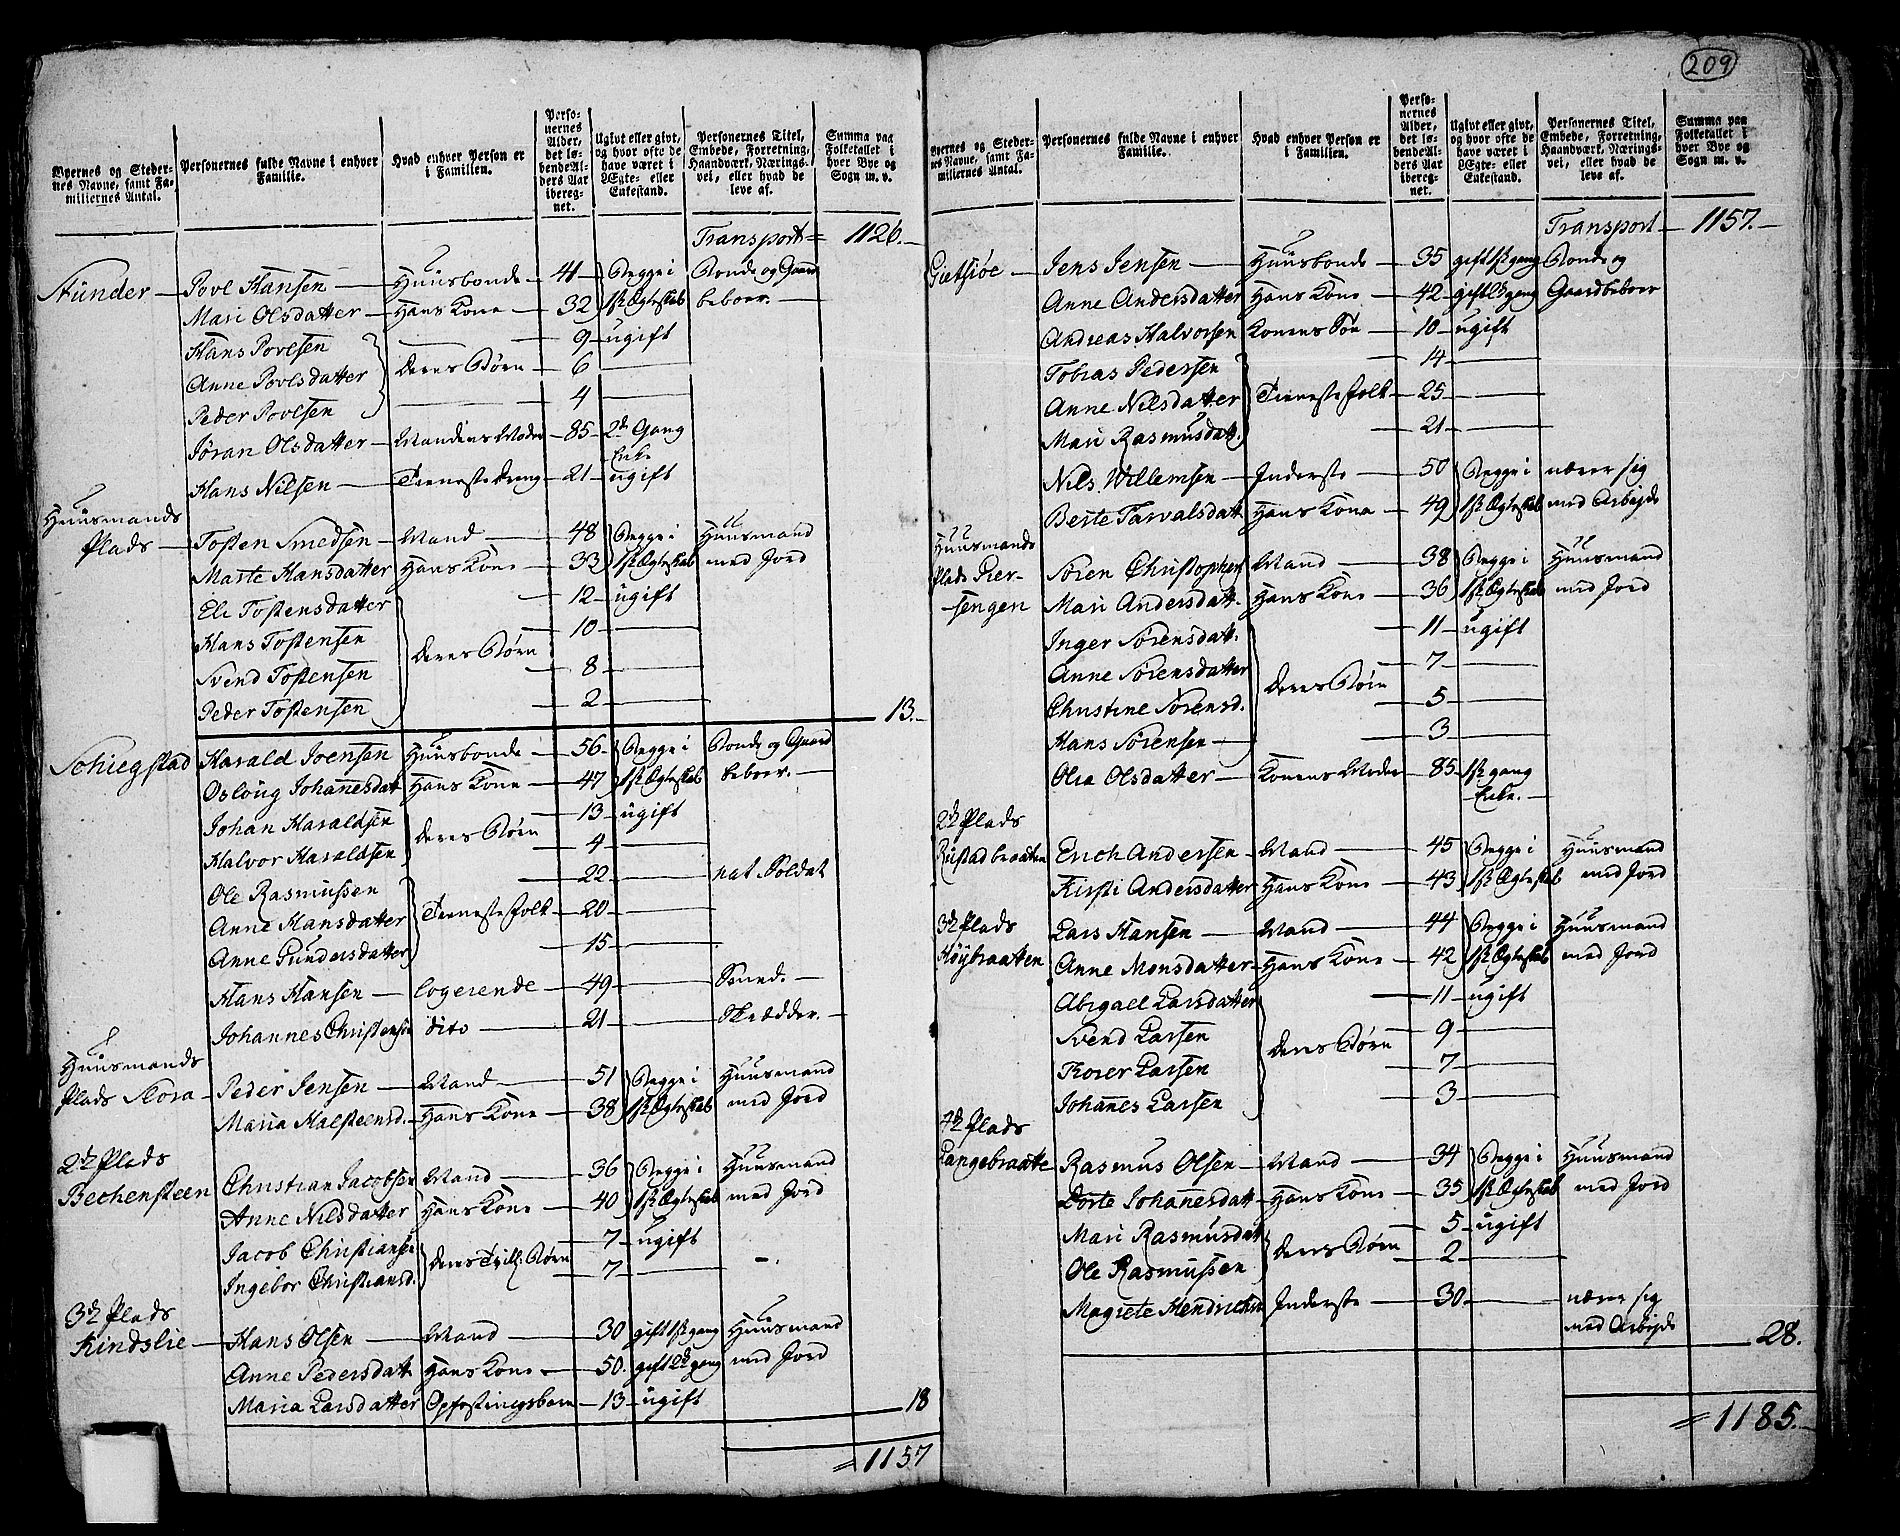 209
Byernes og Stedernes Navne, samt Familiernes Antal.
Personernes fulde Navne i enhver Familie.
Hvad enhver Person er i Familien.
Personernes Alder, det løbende Alders Aar iberegnet.
Ugivt eller givt, og hvor ofte de have været i Ægte- eller Enkestand.
Personernes Titel, Embede, Forretning, Haandværk, Næringsvei, eller hvad de leve af.
Summa paa Folketallet i hver Bye og Sogn m. v.
Transport = 1126.
Stünder — Povl Hansen — Huusbonde — 41 Begge i Bonde og Gaard
Mari Olsdatter — Hans Kone — 32 1ste Ægteskab beboer.
Hans Povelsen — 9 — ugift
Anne Povelsdatter deres Børn — 6 —
Peder Povelsen — 4 —
Jøran Olsdatter — Mandens Moder — 85 — 2den Gang Enke
Hans Nilsen — Tieneste Dreng — 21 — ugift
Huusmands
Plads — Tosten Smedsen — Mand — 48 Begge i Huusmand
Marte Hansdatter Hans Kone — 33 1ste Ægteskab med Jord
Eli Tostensdatter — 12 — ugift
Hans Tostensen — 10 —
Svend Tostensen deres Børn — 8 —
Peder Tostensen — 2 — 13.
Schiegstad Harald Joensen Huusbonde — 56 Begge i Bonde og Gaard
Osloug Johannesdat Hans Kone — 47 1ste Ægteskab beboer. —
Johan Haraldsen — 13 — ugift
Halvor Haraldsen deres Børn — 4 —
Ole Rasmussen — 22 — nat. Soldat
Anne Hansdatter Tienestefolk — 20 —
Anne Gundersdatter — 15 —
Hans Hansen — logerende — 49 — Smed. —
Johannes Christensen dito — 21 — Skrædder. —
Huusmands
Plads Mora — Peder Jensen — Mand — 51 Begge i Huusmand
Maria Halsteensd. — Hans Kone — 38 1ste Ægteskab med Jord
2de Plads
Bechensteen Christian Jacobsen Mand — 36 Begge i Huusmand
Anne Nilsdatter Hans Kone — 40 1ste Ægteskab med Jord
Jacob Christiansen — 7 — ugift
Ingebor Christiansd. deres Tvill. Børn — 7 —
3de Plads
Rindslie — Hans Olsen — Mand — 30 gift 1ste gang Huusmand
Anne Pedersdatt Hans Kone — 50. gift 2de gang med Jord
Maria Larsdatter Opfostringsbarn — 13 — ugift 18
= 1157
Byernes og Stedernes Navne, samt Familiernes Antal.
Personernes fulde Navne i enhver Familie.
Hvad enhver Person er i Familien.
Personernes Alder, det løbende Alders Aar iberegnet.
Ugivt eller givt, og hvor ofte de have været i Ægte- eller Enkestand.
Personernes Titel, Embede, Forretning, Haandværk, Næringsvei, eller hvad de leve af.
Summa paa Folketallet i hver Bye og Sogn m. v.
Transport — 1157. —
Gietsiøe — Jens Jensen — Huusbonde — 35 gift 1ste gang Bonde og
Anne Andersdatter Hans Kone — 42 — gift 2de gang Gaardbeboer
Andreas Halvorsen Konens Søn — 10 — ugift
Tobias Pedersen — 14 —
Anne Nilsdatter Tienestefolk — 25 —
Mari Rasmusdatt. — 21 —
Nils Willemsen — Inderste — 50 Begge i nærer sig
Berte Tarvalsdatt Hans Kona — 49 1ste Ægteskab med Arbejde
Huusmands
Plads Pier- Søren Christophers Mand — 38 Begge i Huusmand
-sengen Mari Andersdatt. Hans Kone — 36 1ste Ægteskab med Jord
Inger Sørensdatt. — 11 — ugift
Anne Sørensdatter — 7 —
Christine Sørensd. deres Børn — 5 —
Hans Sørensen — 3 —
Olia Olsdatter — Konens Moder — 85 — 1ste gang Enke. —
2de Plads
Rustadbraaten Erich Andersen — Mand — 45 Begge i Huusmand
Kirsti Andersdatter Hans Kone — 43 1ste Ægteskab med Jord
3de Plads Lars Hansen — Mand — 44 Begge i Huusmand
Høybraatten Anne Monsdatter Hans Kone — 42 1ste Ægteskab med Jord
Abigael Larsdatter — 11 — ugift
Svend Larsen — 9 —
Korer Larsen deres Børn — 7 —
Johannes Larsen — 3 —
4de Plads
Langebraate Rasmus Olsen — Mand — 34 Begge i Huusmand
Dorte Johannesdatt Hans Kone — 35 1ste Ægteskab med Jord
Mari Rasmusdat — 5 — ugift
Ole Rasmussen deres Børn — 2 —
Magrete Hendrichsd Inderste — 30 — nærer sig
med Arbejde
28.
= 1185. —